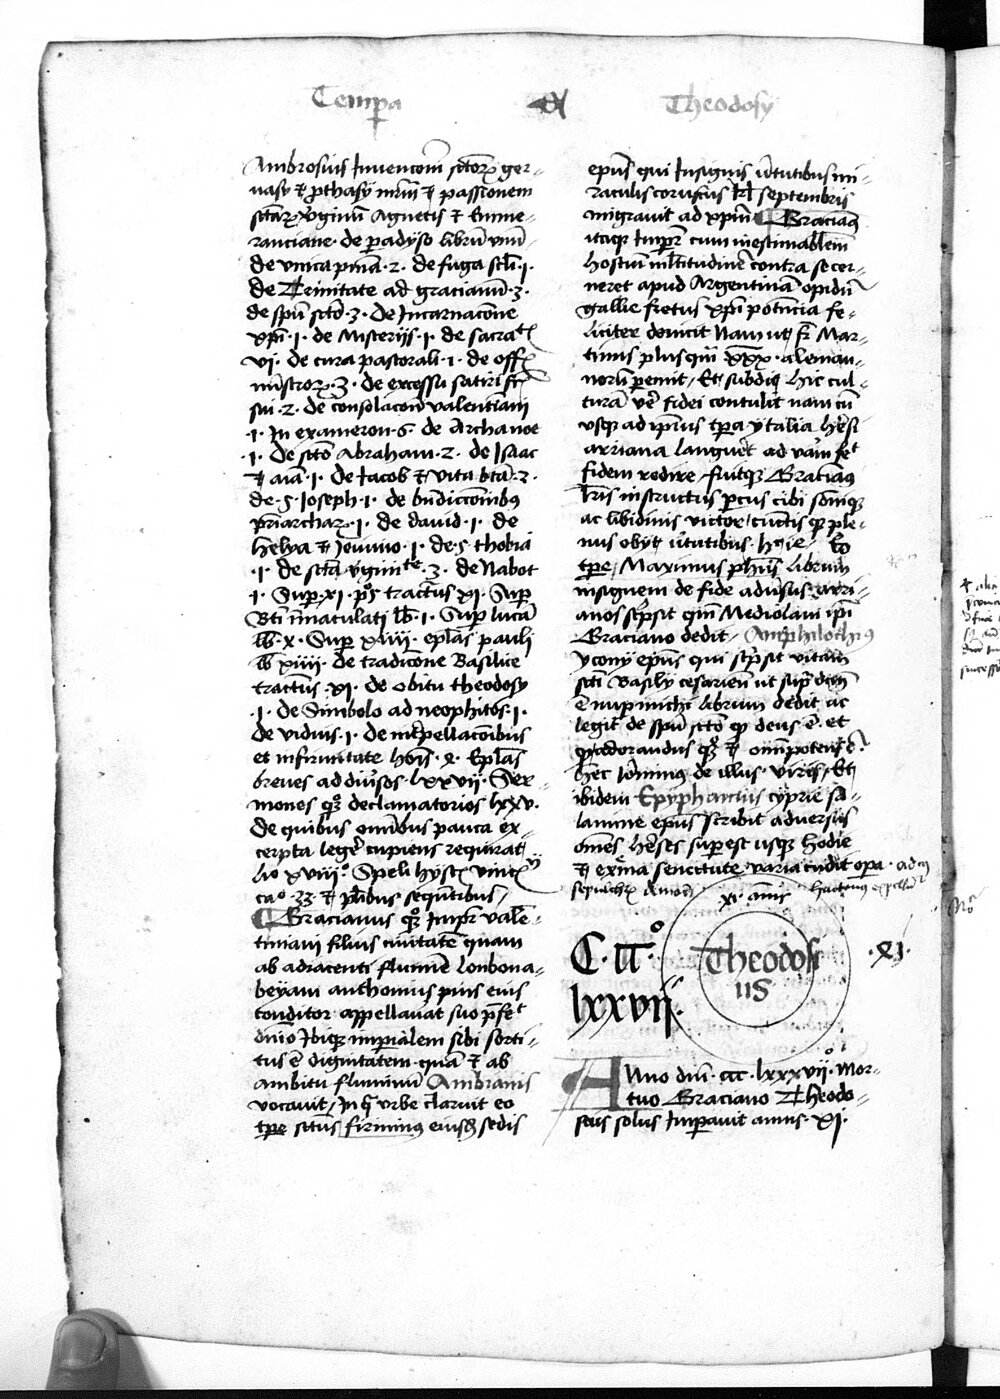 Tempa
Theodosy
Ambrosius Invencom sctorz ger-
uasy et pthasy mrm et passionem
sctarz vginu Agnetis et Emme-
ranciane. de padyso libru vnu
de vnica pma. 2. de fuga scli. 1.
de Trinitate ad gracianu. 3.
de spu scto. 3. de Incarnacone
xpi. 1. de Misterijs. 1. de sacra
vi. de cura pastorali. 1. de off
mistrorz. 3. de excessu satiri fr
sui. 2. de consolacon valentiani
.1. In exameron. 6. de Archa noe
.1. de scto Abraham. 2. de Isaac
et aia. 1. de Jacob et vita bta. 2.
de. s. Joseph. 1. de bndiccoibus
priarcharz. 1. de david. 1. de
helya et Jeiunio. 1. de. s. thobia
.1. de scta vgin 3. de Nabot
1. Sup. xi. ps tractus xi. Sup
Bti imaculati lb. 1. Sup lucam
lb. x. Sup xiiii. eplas pauli
lb xiiii. de tradicone Basilice
tractus. vi. de obitu theodosy
.1. de Simbolo ad neophitos. 1.
de viduis. 1. de interpellaconibus
et infirmitate hois. 2. Eplas
breues ad diuersos. lxxvii. Ser-
mones qz declamatorios lxxv.
De quibus omibus pauca ex-
cerpta lege cupiens requirat
lio xviii. Speculi hyst vinc
ca. 33. et pluribus sequtibus
Gracianus qz Impr vale-
tiniani filius ciuitate quam
ab adiacenti flumie Sonbona-
beyam anthonius pius eius
conditor appellauat suo pfe
dnio Ibiqz imperialem sibi sorti-
tus e dignitatem. quam et ab
ambitu fluminu Ambranis
vocauit, In q vrbe claruit eo
tpe sctus firminus eiusdem sedis
epus qui Insignis virtutibus mi-
raculis coruscus kl septembris
migrauit ad xpm Gracianus
itaqz Impr cum inestimabilem
hostium multitudine contra se cer-
neret apud Argentinam opidu
gallie fretus xpi potencia fe-
liciter deuicit Nam ut fr Mar-
tinus plusqm xxx. aleman-
norum pemit, Et subdit hic cul-
tura vere fidei contulit nam cu
vsqz ad ipius tpa ytalia heresi
arriana languet ad vam
fidem redire fecitqz Gracianus
lris instructus parcus cibi somniqz
ac libidinis victor, cunctis qz ple-
nus obyt virtutibus. hec ille. Eo
tpe, Maximus phus librum
insignem de fide aduersus arri-
anos scpsit quem Mediolani ipi
Graciano dedit. Amphilochius
yconij epus qui scpsit vitam
scti Basily cesarien ut supra dcm
e nup michi librum dedit ac
legit de spu scto qz deus e. et
qz adorandus qz et omnipotens e.
hec Ieronimus de illus. viris, Et
ibidem Epyphanius cyprie sa-
lamine epus scribit aduersus
omes hereses superest usqz hodie
et extrema senectute varia cudit opa.
xi. annis
C. iii
lxxvii.
Theodosi
us
.XI.
Anno dni. ccc. lxxxvii. Mor-
tuo Graciano Theodo-
sius solus Impauit annis. XI.